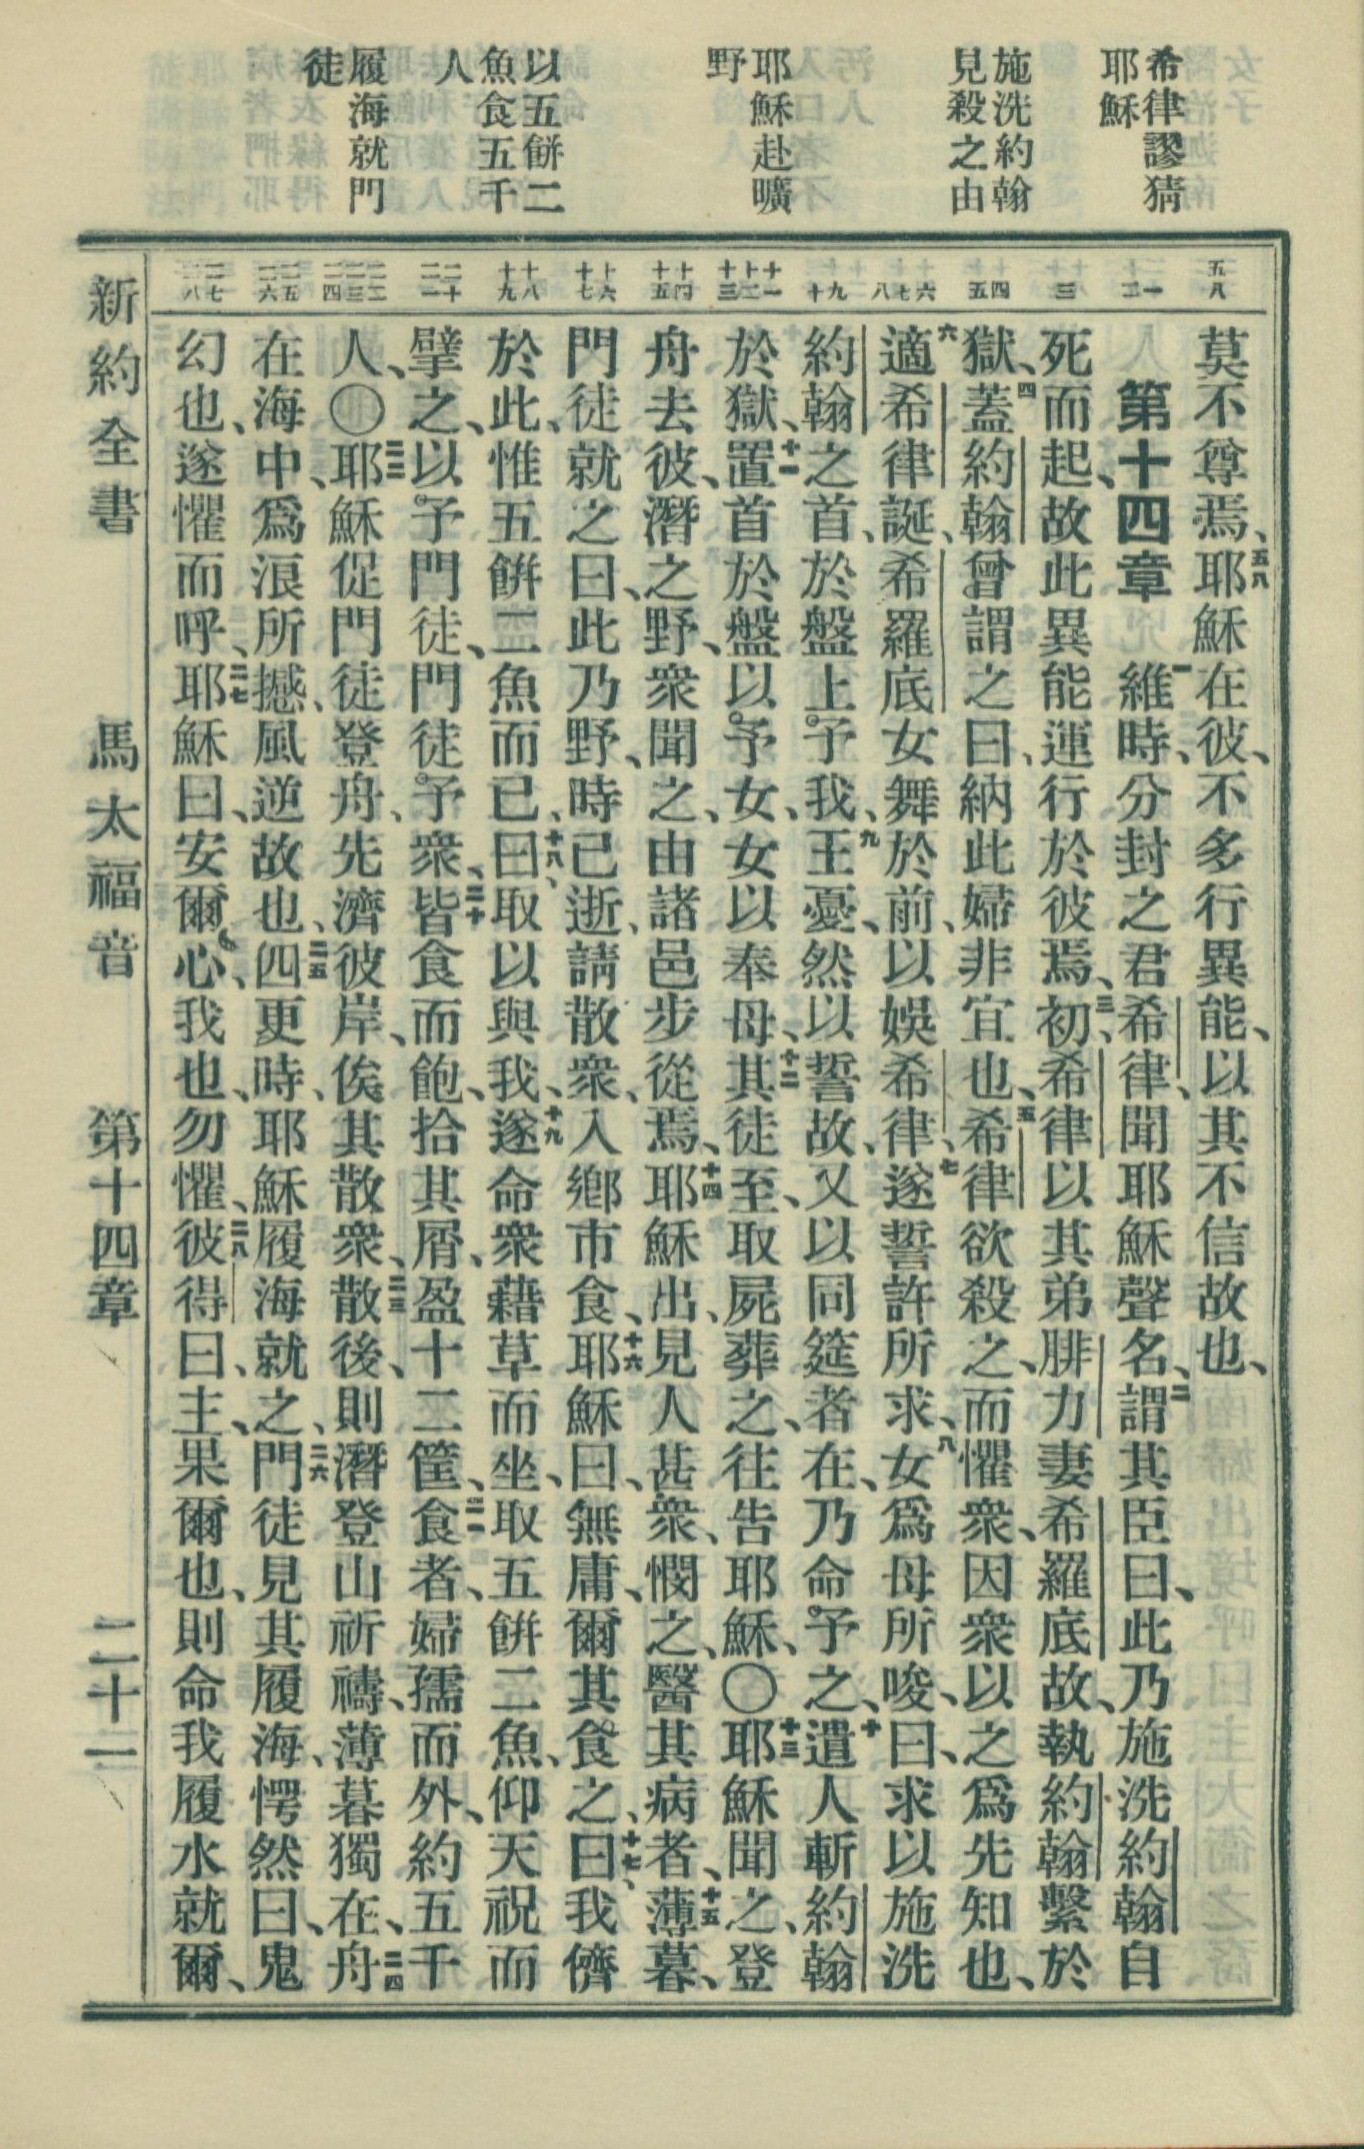 希律謬猜
耶穌
施洗約翰
見殺之由
耶穌赴曠
野
以五餅二
魚食五千
人
履海就門
徒
五八
一
二
三
四
五
六
七
八
九
十
十一
十二
十三
十四
十五
十六
十七
十八
十九
二十
二一
二二
二三
二四
二五
二六
二七
二八
莫不尊焉、五八耶穌在彼、不多行異能、以其不信故也、
第十四章 一維時、分封之君希律、聞耶穌聲名、二謂其臣曰、此乃施洗約翰自
死而起、故此異能運行於彼焉、三初、希律以其弟腓力妻希羅底故、執約翰繫於
獄、四蓋約翰曾謂之曰、納此婦非宜也、五希律欲殺之、而懼衆、因衆以之爲先知也、
六適希律誕、希羅底女舞於前、以娛希律、七遂誓許所求、八女爲母所唆、曰、求以施洗
約翰之首、於盤上予我、九王憂、然以誓故、又以同筵者在、乃命予之、十遣人斬約翰
於獄、十一置首於盤以予女、女以奉母、十二其徒至、取屍葬之、往告耶穌、〇十三耶穌聞之、登
舟去彼、潛之野、衆聞之、由諸邑步從焉、十四耶穌出、見人甚衆、憫之、醫其病者、十五薄暮、
門徒就之曰、此乃野、時已逝、請散衆、入鄉市食、十六耶穌曰、無庸、爾其食之、十七曰、我儕
於此、惟五餅二魚而已、十八曰、取以與我、十九遂命衆藉草而坐、取五餅二魚、仰天祝而
擘之、以予門徒、門徒予衆、二十皆食而飽、拾其屑、盈十二筐、二一食者、婦孺而外、約五千
人、〇二二耶穌促門徒登舟、先濟彼岸、俟其散衆、二三散後、則潛登山祈禱、薄暮獨在、二四舟
在海中、爲浪所撼、風逆故也、二五四更時、耶穌履海就之、二六門徒見其履海、愕然曰、鬼
幻也、遂懼而呼、二七耶穌曰、安爾心、我也、勿懼、二八彼得曰、主、果爾也、則命我履水就爾、
新約全書 馬太福音 第十四章 二十一